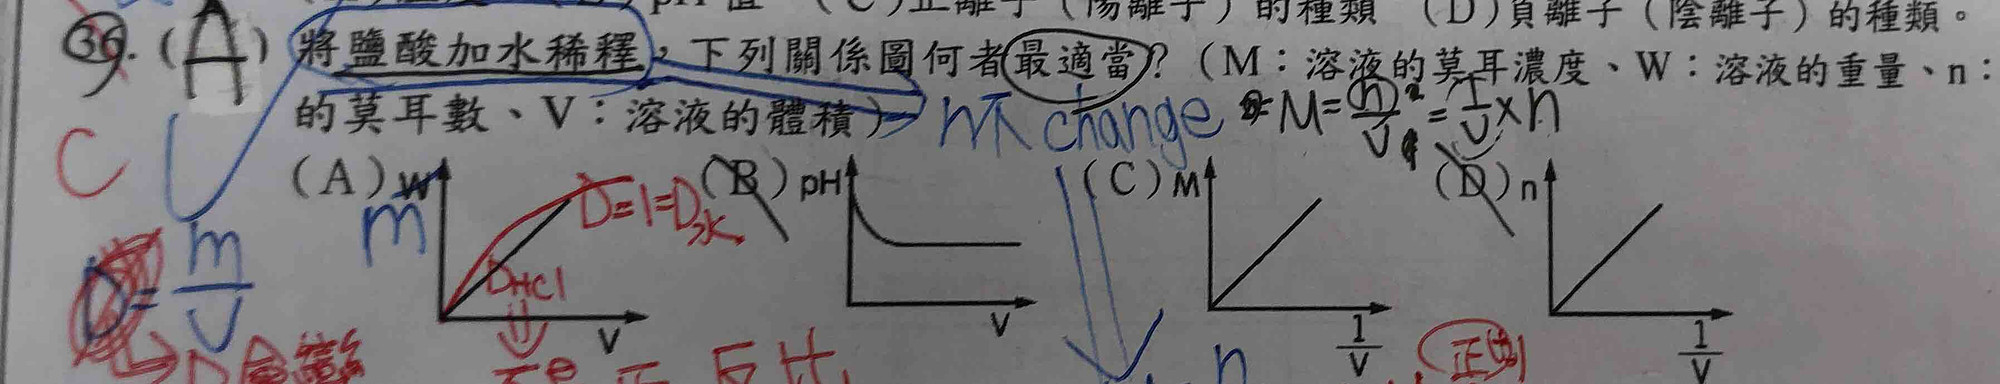 (C)正離子(陽離子)的種類 (D)負離子(陰離子)的種類。
36.(A)將鹽酸加水稀釋,下列關係圖何者最適當?(M:溶液的莫耳濃度、W:溶液的重量、n:
的莫耳數、V:溶液的體積) n不change M=n/V=1/V×n
C
(A) W (B) pH (C) M (D) n
m D=1=D水
D=m/V
DHCl
V V 1/V 1/V
反比 n 正比